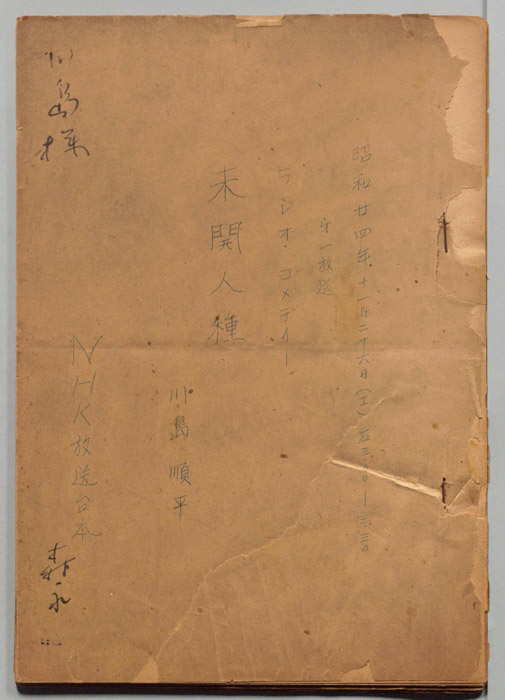 昭和廿四年十一月二十六日(土)
第一放送
ラジオ・コメディー
未開人種
川島順平
NHK放送台本
川島様